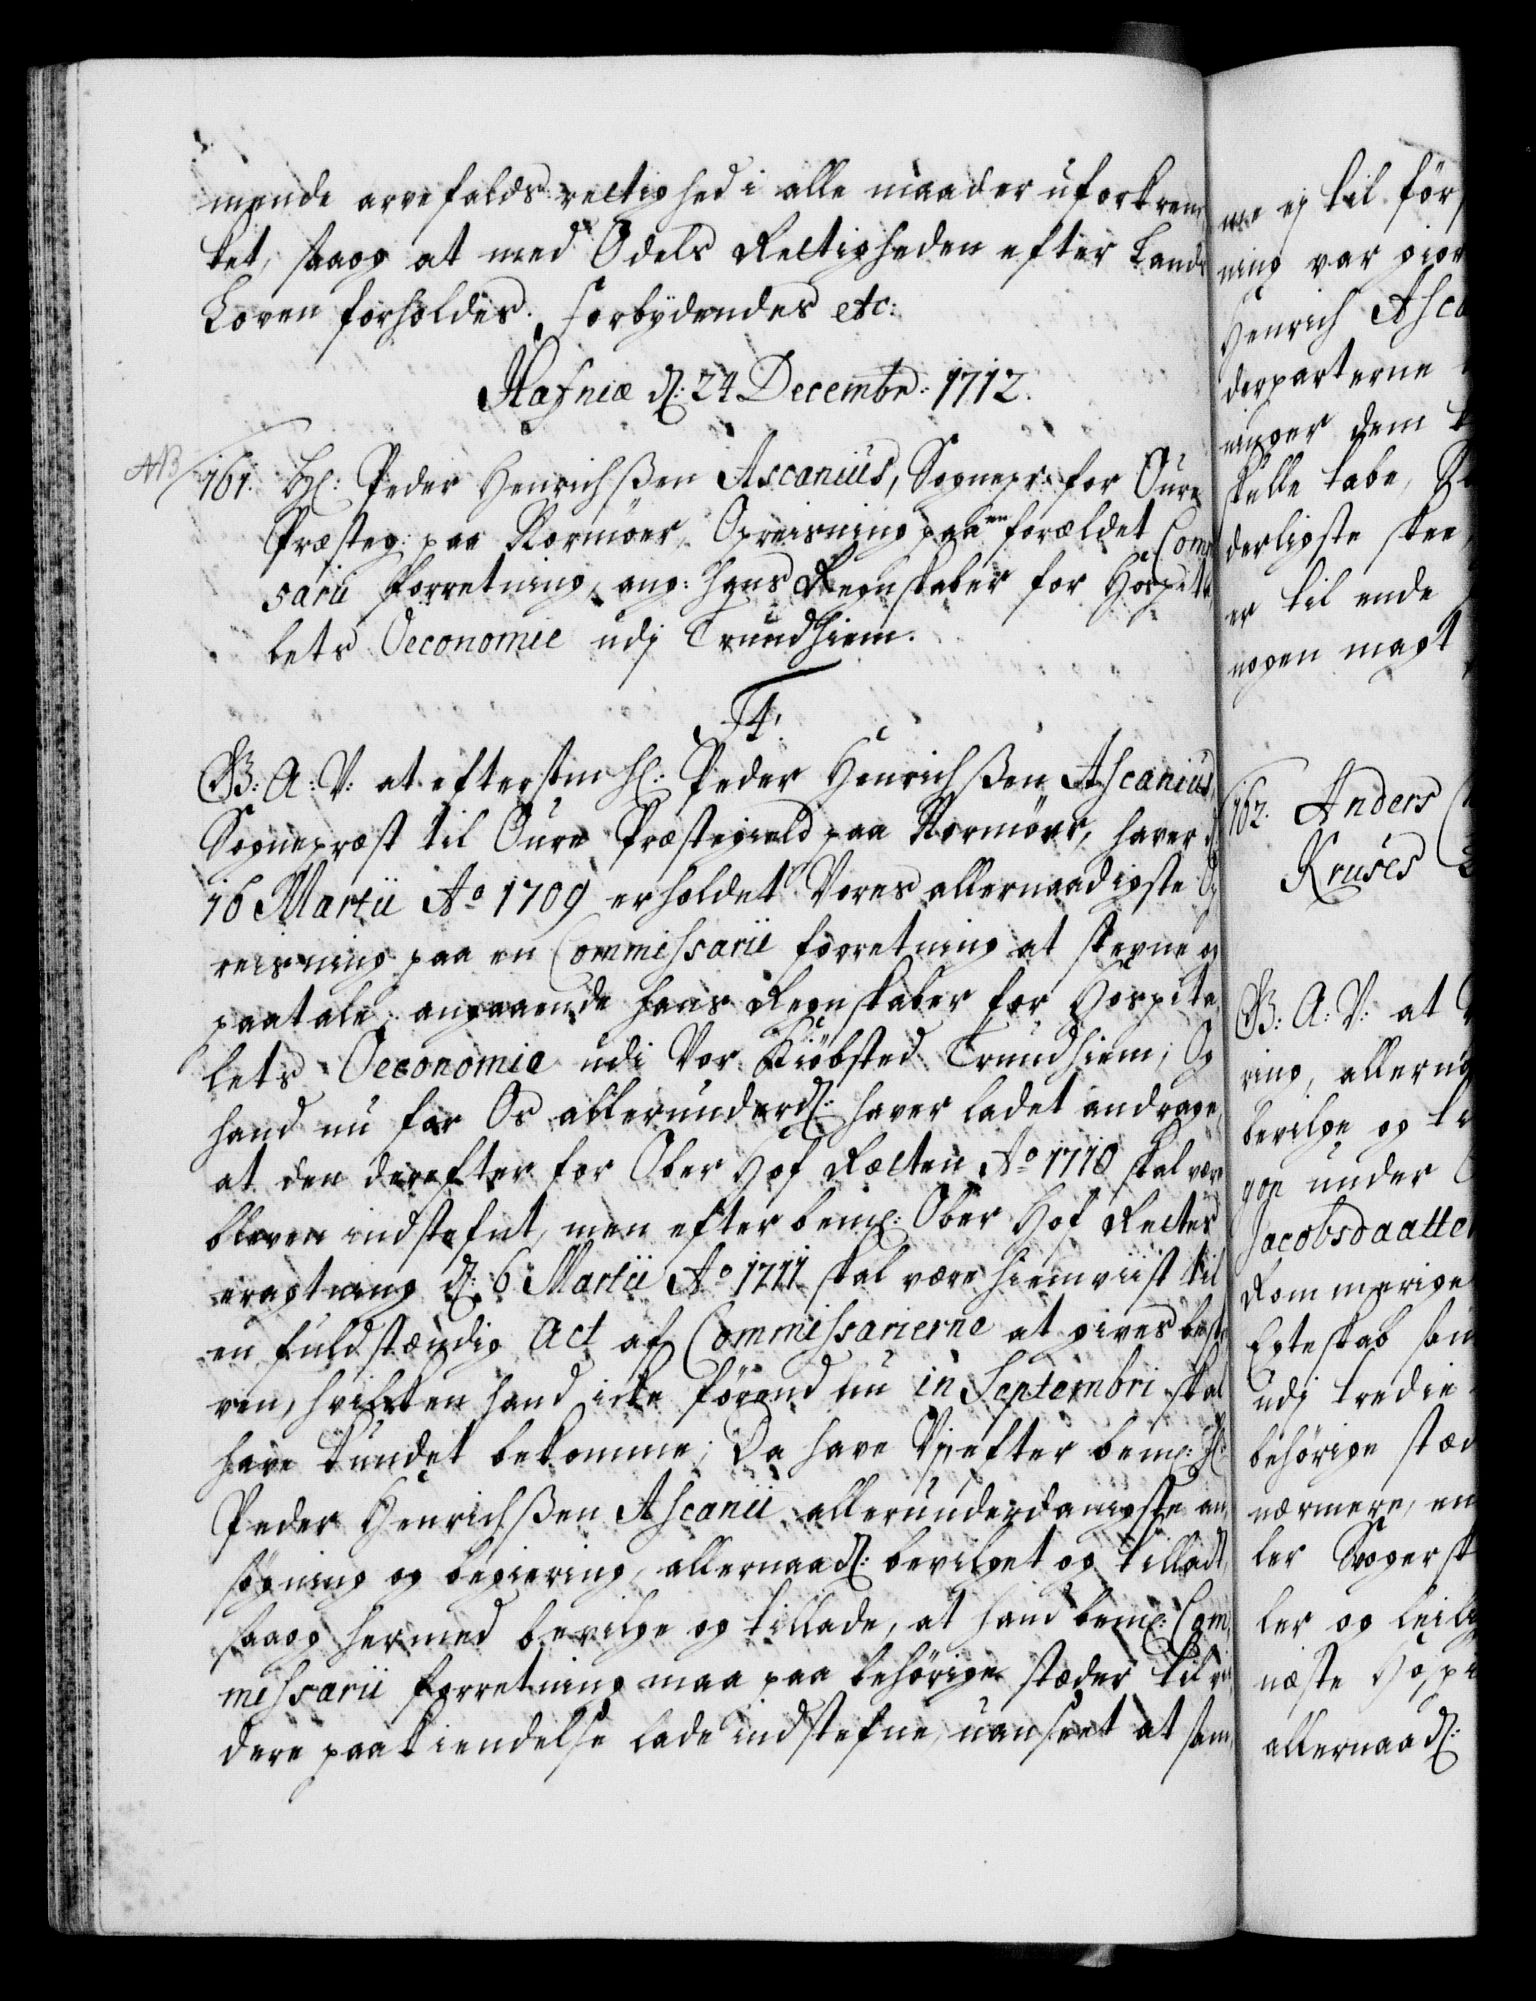 mende arvefalds rettighed i alle maader uforkren,
ket, saaog at med Odels Rettigheden efter Lands
Loven forholdes. Forbydendes etc:
Hafniæ d: 24 Decembr: 1712.
NB
161. Hr: Peder Henrichßen Ascanius, Sognepr: for Oure
Præsteg: paa Normöer, Opreisning paa en forældet Comis
sarii forretning, ang: hans Regnskaber for Hospita
lets Oeconomie udj Trundhiem.
F4.
G: A: V: at eftersom Hr: Peder Henrichßen Ascanius,
Sognepræst til Oure Præstegield paa Normöer, haver d:
16 Martii Ao 1709 erholdet Vores allernaadigste Op
reisning paa en Commissarii forretning at stevne og
paatale, angaaende hans Regnskaber for Hospita
lets Oeconomie udi Vor Kiöbsted Trundhiem; Og
hand nu for Os allerunderd: haver ladet andrage,
at den derefter for Ober Hof Retten Ao 1710 skal være
bleven indstefnt, men efter bemt: Ober Hof Rettes
eragtning d: 6 Martii Ao 1711 skal være hiemviist til
en fuldstændig Act af Commissarierne at gives beskre
ven, hvilken hand icke förend nu in Septembri skal
have kundet bekomme; Da have Vj, efter bemt: Hr:
Peder Henrichßen Ascanii allerunderdanigste an,
søgning og begiering, allernaad: bevilget og tilladt,
saaog hermed bevilge og tillade, at hand bemt: Com,
missarii forretning maa paa behörige stæder til vi,
dere paakiendelse lade indstefne, uanseet at sam,
me ej til för
ning var gior
Henrich Asca
derparterne
ninger dem
skulle tabe,
derligste skee
er til ende
nogen magt
162. Anders
Kruses
G: A: V: at
ring, allern
bevilge og
gen under
Jacobsdaatter
Rommerige
Egteskab sam
udj tredie
behörige stæd
nærmere, en
ler Svogersk
ler og leil
næste Hospi
allernaad: